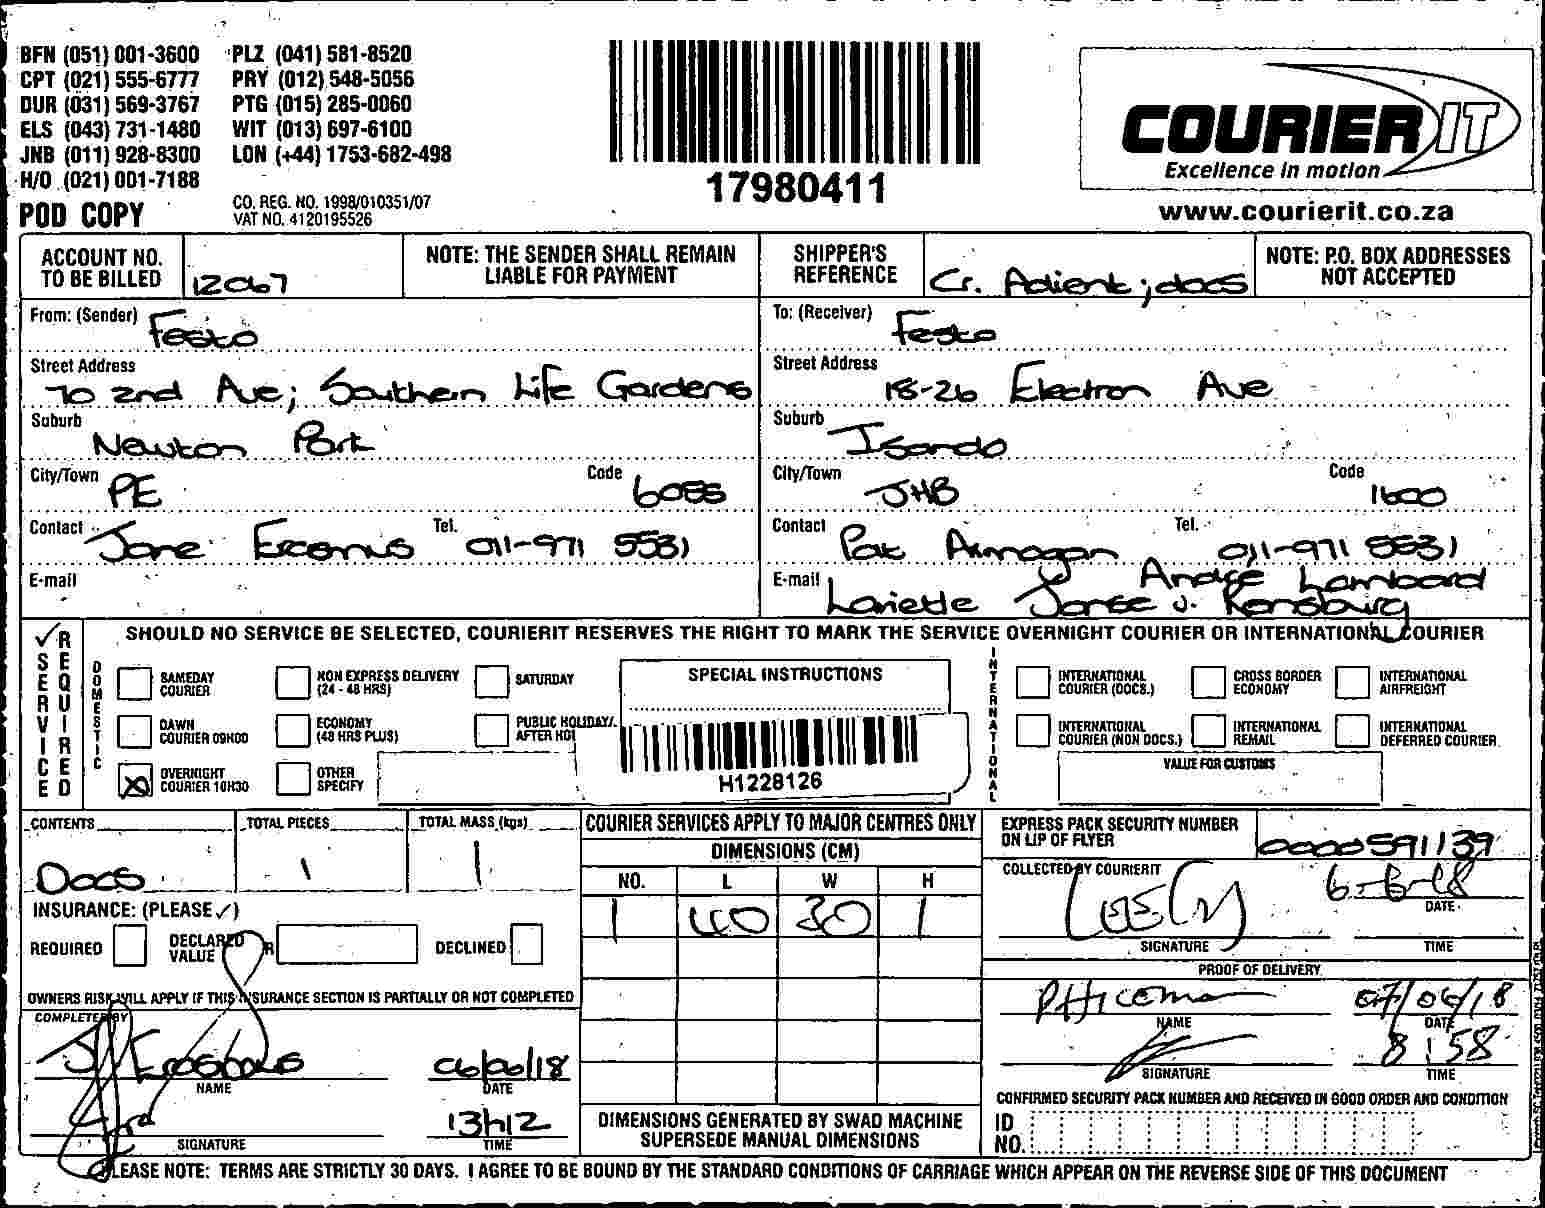 BFN (051) 001-3600 PLZ (041) 581-8520
CPT (021) 555-6777 PRY (012) 548-5056
DUR (031) 569-3767 PTG (015) 285-0060
ELS (043) 731-1480 WIT (013) 697-6100
JNB (011) 928-8300 LON (+44) 1753-682-498
H/O (021) 001-7188
CO. REG. NO. 1998/010351/07
POD COPY VAT NO. 4120195526
17980411
COURIER IT
Excellence in motion
www.courierit.co.za
ACCOUNT NO. TO BE BILLED 12067
NOTE: THE SENDER SHALL REMAIN LIABLE FOR PAYMENT
SHIPPER'S REFERENCE Cr. Adient; docs
NOTE: P.O. BOX ADDRESSES NOT ACCEPTED
From: (Sender) Festo
Street Address
70 2nd Ave; Southern Life Gardens
Suburb
Newton Park
City/Town PE Code 6055
Contact Jane Erasmus Tel. 011-971 5531
E-mail
To: (Receiver) Festo
Street Address
18-26 Electron Ave
Suburb
Isando
City/Town JHB Code 1600
Contact Pat Armogan Tel. 011-971 5531
André Lambaard
E-mail Lariette Janse v. Rensburg
SERVICE REQUIRED
SHOULD NO SERVICE BE SELECTED, COURIERIT RESERVES THE RIGHT TO MARK THE SERVICE OVERNIGHT COURIER OR INTERNATIONAL COURIER
DOMESTIC
SAMEDAY COURIER
NON EXPRESS DELIVERY (24 - 48 HRS)
SATURDAY
DAWN COURIER 09H00
ECONOMY (48 HRS PLUS)
PUBLIC HOLIDAY/ AFTER
OVERNIGHT COURIER 10H30
OTHER SPECIFY
SPECIAL INSTRUCTIONS
H1228126
INTERNATIONAL
INTERNATIONAL COURIER (DOCS.)
CROSS BORDER ECONOMY
INTERNATIONAL AIRFREIGHT
INTERNATIONAL COURIER (NON DOCS.)
INTERNATIONAL REMAIL
INTERNATIONAL DEFERRED COURIER
VALUE FOR CUSTOMS
CONTENTS TOTAL PIECES TOTAL MASS (kgs)
Docs 1 1
INSURANCE: (PLEASE ✓)
REQUIRED DECLARED VALUE R DECLINED
OWNERS RISK WILL APPLY IF THIS INSURANCE SECTION IS PARTIALLY OR NOT COMPLETED
COMPLETED BY
J Erasmus 06/06/18
NAME DATE
13h12
SIGNATURE TIME
COURIER SERVICES APPLY TO MAJOR CENTRES ONLY
DIMENSIONS (CM)
NO. L W H
1 40 30 1
DIMENSIONS GENERATED BY SWAD MACHINE SUPERSEDE MANUAL DIMENSIONS
EXPRESS PACK SECURITY NUMBER ON LIP OF FLYER 0000591139
COLLECTED BY COURIERIT
6-6-18
DATE
SIGNATURE TIME
PROOF OF DELIVERY
07/06/18
NAME DATE
8:58
SIGNATURE TIME
CONFIRMED SECURITY PACK NUMBER AND RECEIVED IN GOOD ORDER AND CONDITION
ID NO.
PLEASE NOTE: TERMS ARE STRICTLY 30 DAYS. I AGREE TO BE BOUND BY THE STANDARD CONDITIONS OF CARRIAGE WHICH APPEAR ON THE REVERSE SIDE OF THIS DOCUMENT